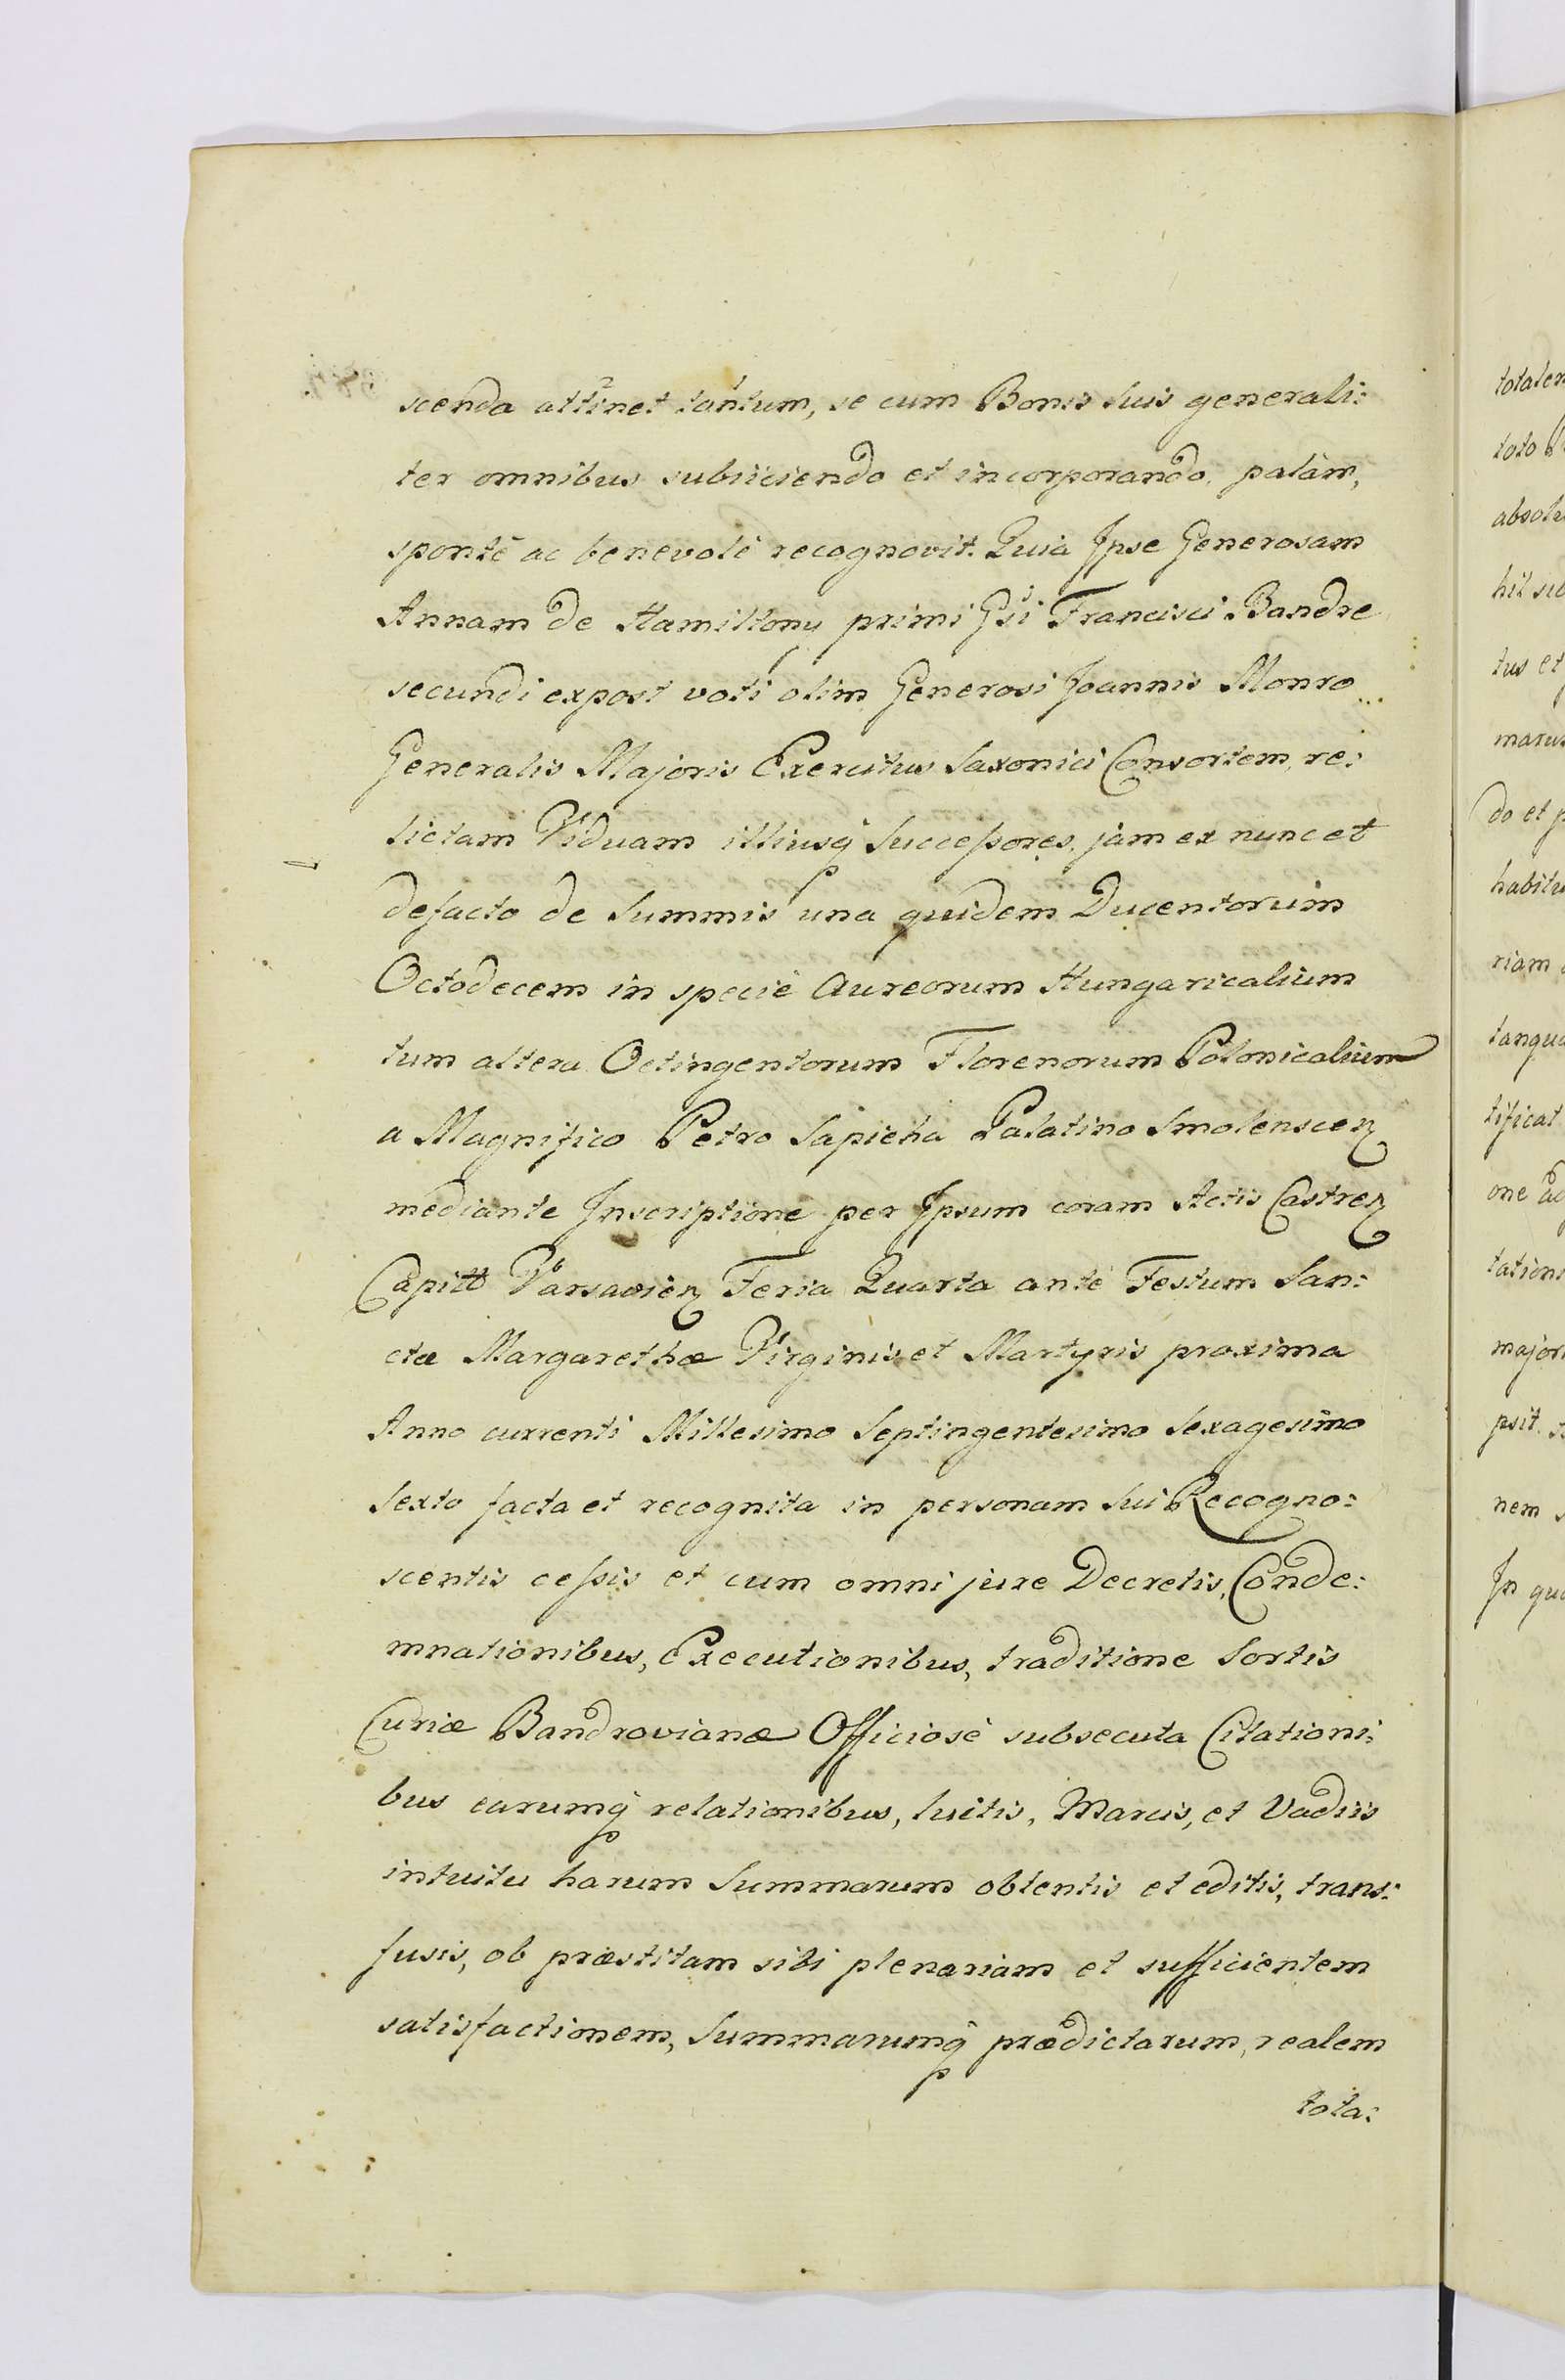 scenda attinet tantum, se cum Bonis suis generali:
ter omnibus subiiciendo et incorporando, palàm,
spontè ac benevolè recognovit. Quia Ipse Generosam
Annam de Hamiltony primi Gsi Francisci Bandre
secundi expost voti olim Generosi Joannis Monro
Generalis Majoris Exercitus Saxonici Consortem, re:
lictam Viduam illiusq̃ Successores, jam ex nunc et
defacto de Summis una quidem Ducentorum
Octodecem in speciè Aureorum Hungaricalium
tum altera Octingentorum Florenorum Polonicalium
a Magnifico Petro Sapieha Palatino Smolenscen
mediante Inscriptione per Ipsum coram Actis Castren
Capitt Varsavien Feria Quarta antè Festum San:
ctæ Margarethæ Virginis et Martyris proxima
Anno currenti Millesimo Septingentesimo Sexagesimo
Sexto facta et recognita in personam sui Recogno:
scentis cessis et cum omni jure Decretis, Conde:
mnationibus, Executionibus, traditione Sortis
Curiæ Bandrovianæ Officiosè subsecuta Citationi:
bus earumq̃ relationibus, luitis, Marcis, et Vadiis
intuitu harum Summarum obtentis et editis, trans:
fusis, ob præstitam sibi plenariam et sufficientem
satisfactionem, Summarumq̃ prædictarum, realem
tota:
toto
habitu
tificat
major
psit
nem